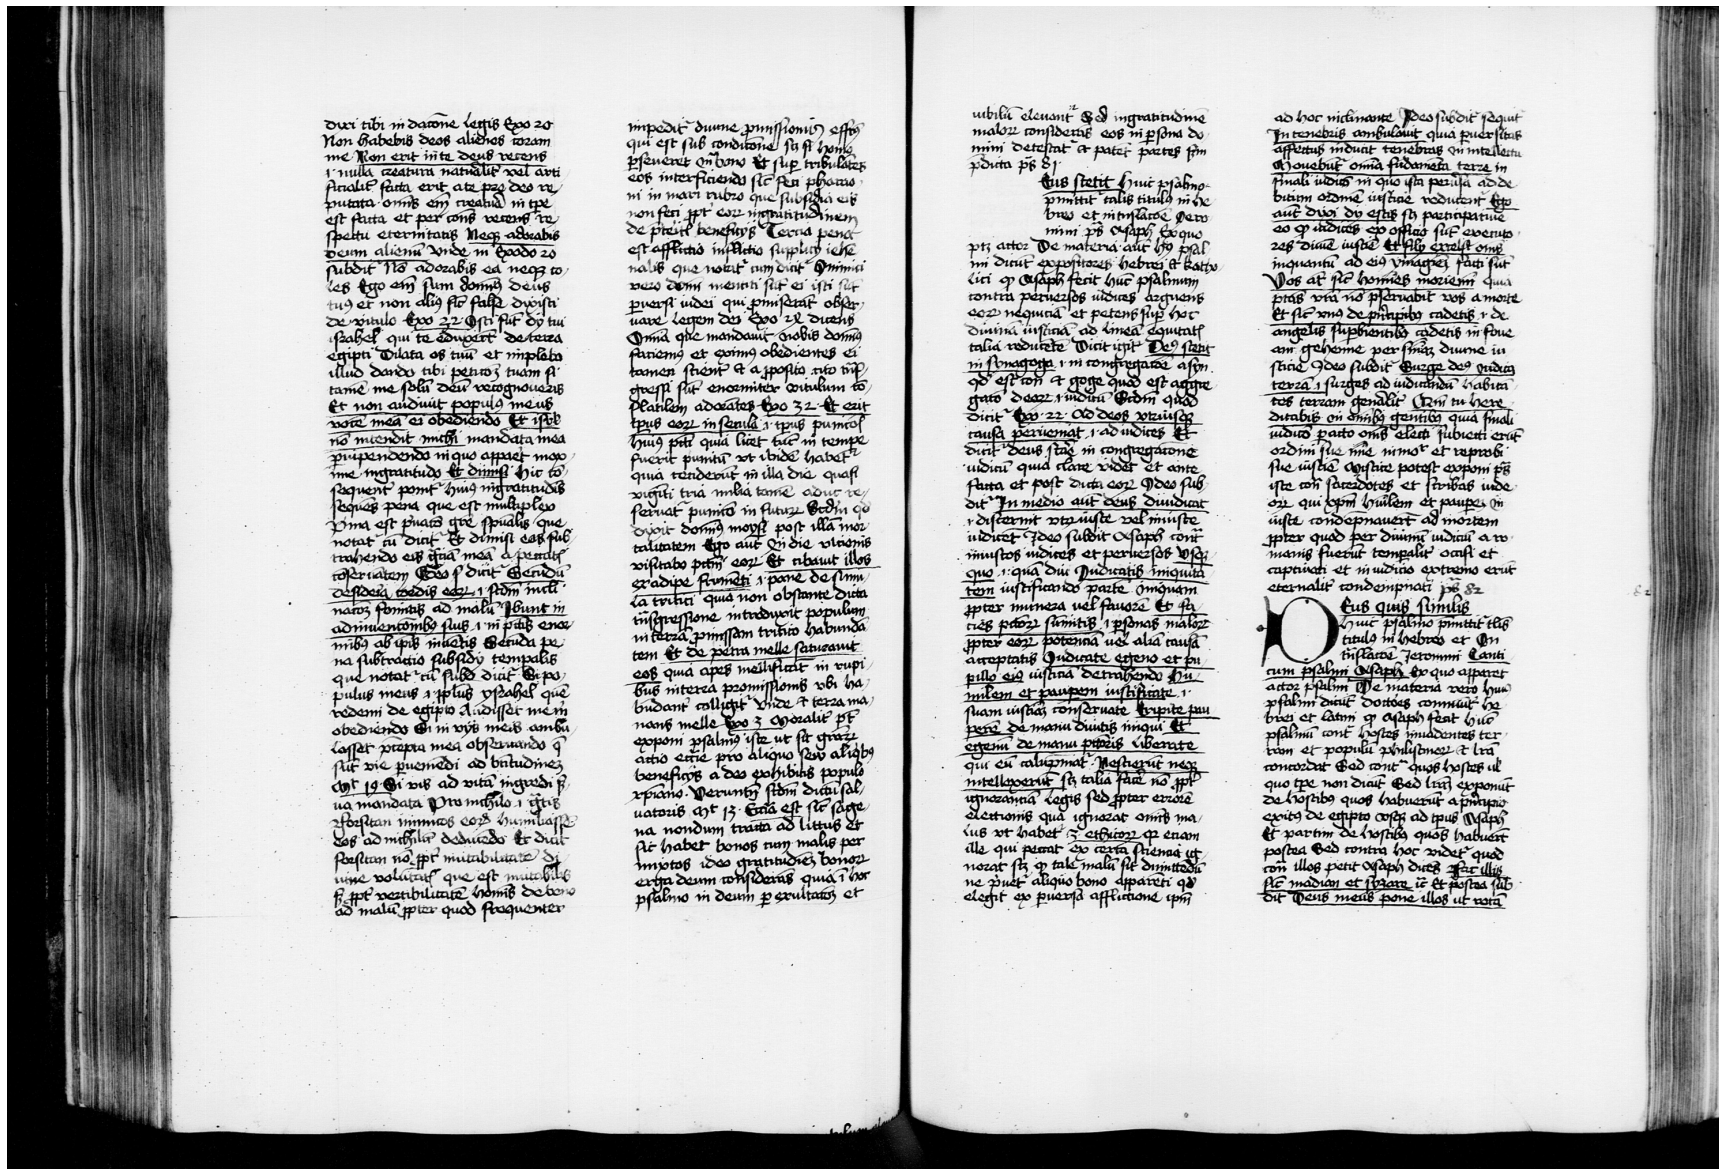 dixi tibi in dacōne legis Exo 20
Non habebis deos alienos coram
me Non erit in te deus recens
.i. nulla creatura naturalit̄ vel arti
ficialit̄ facta erit a te pro deo re
putata omīs em̄ creatura in tpe
est facta et per cons̄ recens re
spectu eternitatis Neqz adorabis
deum alienū Unde in Exodo 20
subdit Nō adorabis ea neqz co
les Ego em̄ sum domīus deus
tuus et non alius sic̄ false dixisti
de vitulo Exo 32 Isti sūt dy tui
israhel qui te eduxerūt de terra
egipti Dilata os tuū et implebo
illud dando tibi petita tuam si
tamē me solū deū recognoveris
Et non audivit populus meus
vocē meā ei obediendo Et isrl
nō intendit michi mandata mea
pvipendendo in quo apparet max
ime ingratitudo Et dimisi Hic cō
sequent̄ ponit̄ huius ingratitudis
seques pena que est multiplex
Pma est p̄uatō grē sp̄ualis que
notat̄ cū dicit̄ Et dimisi eos sub
trahendo eis grāam meā a peccatis
cōseruātem
desideria cordis eorz .i. scdm incli
nacōz fomitis ad malū Ibunt in
adinuentionibz suis .i. in pctis enor
mibus ab ipis inuētis Secūda pe
na subtractio subsidy tempalis
que notat̄ cū subd dicit Si po
pulus meus .i. pplus ysrahel quē
redemi de egipto Audisset me in
obediendo Si in vijs meis ambu
lasset p̄cepta mea obseruando q̄
sūt vie pueniēdi ad btitudinez
Mt 19 Si vis ad vitā ingredi s
ua mandata Pro nichilo .i. grātis
Forsitan inimicos eorz humiliassē
eos ad nichilū deducēdo Et dicit̄
forsitan nō ppt̄ mutabilitatē di
uine volūtat̄ que est inmutabilis
s ppt̄ vertibilitatē homīs de bono
ad malū ppter quod frequenter
impedit̄ diuine pmissionis effctus
qui est sub condicōne sc̄ si homo
pseueret in bono Et sup tribulātes
eos interficiendo sic̄ feci pharao
ni in mari rubro que subsidia eis
non feci ppt̄ eorz ingratitudinem
de p̄teritis beneficys Tercia pena
est afflictio inflictio supplicy iehē
nalis que notat̄ cum dicit̄ Inimici
vero domī mentiti sūt ei isti sc̄
puersi iudei qui pmiserāt obser
uare legem dei Exo 24 dicens
Omīa que mandauit nobis domīus
faciemus et erimus obedientes ei
tamen
gressi sūt enormiter vitulum cō
flatilem adorātes Exo 32 Et erit
tpus eorz in secula .i. tpus punicōis
huius pcti quia licet tūc in tempe
fuerit punitū vt ibidē habet̄
quia ceciderūt in illa die quasi
viginti tria milia tamē adhuc re
seruat̄ punicō in futurz Scdm qd
dixit domīus moysi post illā mor
talitatem Ego aūt in die vltionis
visitabo pctm̄ eorz Et cibauit illos
ex adipe frumēti .i. pane de simi
la tritici quia non obstante dicta
trāsgressione introduxit populum
in terrā pmissam tritico habundā
tem Et de petra melle saturauit
eos quia apes mellificāt in rupi
bus in terra promissionis vbi ha
bundant̄ colligit̄ vnde et terra ma
nans melle Exo 3 Moralit̄ pt̄
exponi psalmus iste ut sit grārz
actio ecctīe pro aliquo seu aliqbus
beneficys a deo exhibitis populo
xpiano Veruntn̄ scdm dictū sal
uatoris Mt 13 Eccīa est sic̄ sage
na nondum tracta ad littus et
sic habet bonos cum malis per
mixtos ideo gratitudiez bonorz
erga deum considerās quia ī hoc
psalmo in deum p exultatōz et
iubilū eleuant̄ Sed ingratitudinē
malorz considerās eos in psona do
mini detestat̄ et patet̄ partes scm
pdicta ps 81
Eus stetit Huic psalmo
pmittit̄ talis titulus in he
breo et in trāslacōe Jero
nimi ps Asaph Ex quo
ptz actor De materia aūt huius psal
mi dicūt expositores hebrei et katho
lici qz Asaph fecit hūc psalmum
contra peruersos iudices arguens
eorz nequitiā et petens sup hoc
diuinā iusticiā ad lineā equitatis
talia reducere Dicit igit̄ Deus stetit
in synagoga .i. in congregacōe a syn
qd est con̄ et goge quod est aggre
gatō deorz .i. iudicū Scdm quod
dicit̄ Exo 22 Ad deos vtriusqz
causa perueniat .i. ad iudices Et
dicit̄ deus stare in congregacōne
iudicū quia clare videt et ante
facta et post dicta eorz Ideo sub
dit̄ In medio aūt deus diiudicat
.i. discernit vtrz iuste vel iniuste
iudicēt Ideo subdit Asaph cont̄
iniustos iudices et peruersos Vsqz
quo .i. quā diu Iudicatis iniquita
tem iustificando partē iniquam
ppter munera vel fauorē Et fa
cies pctorz sumitis .i. psonas malorz
ppter eorz potenciā vel aliā causā
acceptatis Iudicate egeno et pu
pillo eius iusticiā detrahendo Hu
milem et paupem iustificate .i.
suam iusticiā conseruate Eripite pau
perē de manu diuitis iniqui Et
egenū de manu pctoris liberate
qui eū calūpniat̄ Nescierūt neqz
intellexerūt sc̄ talia facē nō ppt̄
ignoranciā legis sed ppter errorē
electionis quā ignorat omīs ma
lus vt habet̄ 3 ethicorz qz etiam
ille qui peccat ex certa sciencia ig
norat sc̄ qz tale malū sit dimittendū
ne p̄uet̄ aliquo bono apparēti qd
elegit ex puersa afflictione ipm̄
ad hoc inclinante Ideo subdit̄ sequit̄
In tenebris ambulāt quia puersitas
affectus inducit tenebras in intellectu
Mouebūt omīa fūdamēta terre in
finali iudicō in quo ista peruersa ad de
bitum ordinē iusticie reducent̄ Ego
aūt dixi dy estis sc̄ participatiue
eo qz iudices ex officio sūt executo
res diuie iusticē Et fily excelsi omīs
inquantū ad eius ymaginez facti sūt
Vos aūt sic̄ homines moriemī quia
ptas vrā nō pseruabit vos a morte
Et sic̄ vnus de principibz cadetis .i. de
angelis supbientibz cadetis in foue
am gehenne per snīaz diuine iu
sticie Ideo subdit̄ Surge deus iudica
terrā .i. surges ad iudicandū habitā
tes terram generalit̄ Qm̄ tu here
ditabis in omībz gentibz quia finali
iudicō facto omīs electi subiecti erūt
ordini sue mīe et reprobi
sue iusticē Mistice potest exponi ps
iste con̄ sacerdotes et scribas iude
orz qui xpm̄ humilem et paupez in
iuste condepnauerūt ad mortem
ppter quod per diuinū iudiciū a ro
manis fuerūt tempalit̄ occisi et
captiuati et in iudicio extremo erūt
eternalit̄ condempnati ps 82
82
DEus quis similis
Huic psalmo pmittit̄ tlis
titulus in hebreo et in
trāslacōe Jeronimi Canti
cum psalmi Asaph Ex quo apparet
actor psalmi De materia vero huius
psalmi dicūt doctores comunit̄ he
brei et latini qz Asaph fecit hūc
psalmū cont̄ hostes inuadentes ter
ram et populū philistinorz et lrā
concordat Sed cont̄ quos hostes ul
quo tpre non dicūt Sed lrāz exponūt
de hostibz quos habuerūt a principio
exitus de egipto vsqz ad tpus Asaph
Et partim de hostibz quos habuerūt
postea Sed contra hoc videt̄ quod
con̄ illos petit Asaph dicēs Fac illis
sic̄ madian et syzare ic̄ Et postea sub
dit Deus meus pone illos ut rotā